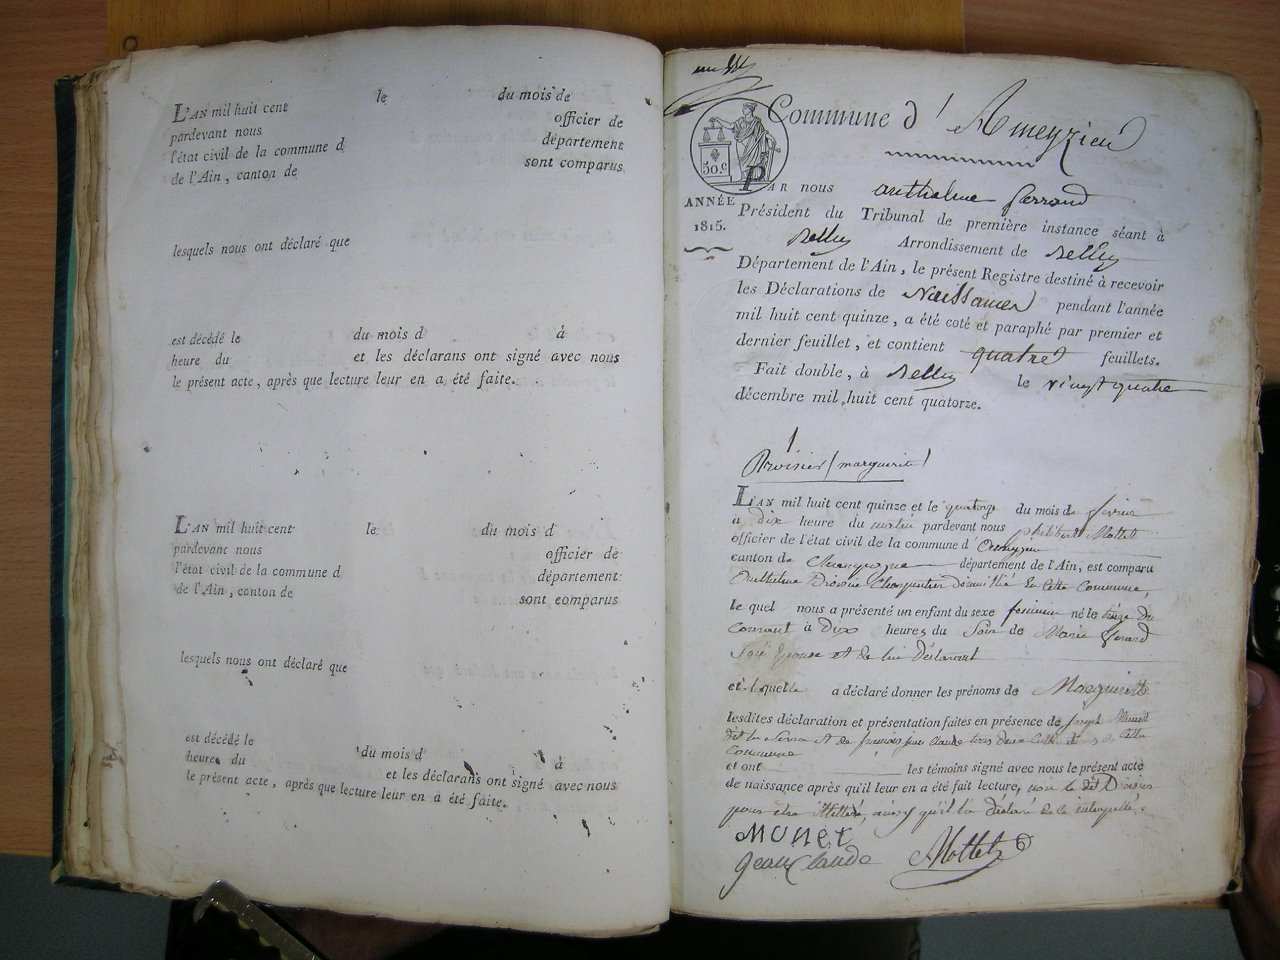 L'AN mil huit cent le du mois de
pardevant nous officier de
l'état civil de la commune d département
de l'Ain, canton de sont comparus
lesquels nous ont déclaré que
est décédé le du mois d à
heure du et les déclarans ont signé avec nous
le présent acte, après que lecture leur en a été faite.
L'AN mil huit cent le du mois d
pardevant nous officier de
l'état civil de la commune d département
de l'Ain, canton de sont comparus
lesquels nous ont déclaré que
est décédé le du mois d à
heure du et les déclarans ont signé avec nous
le présent acte, après que lecture leur en a été faite.
Commune d'Ameyzieu
50.c
ANNÉE
1815.
PAR nous anthelme ferrand
Président du Tribunal de première instance séant à
Belley Arrondissement de Belley
Département de l'Ain, le présent Registre destiné à recevoir
les Déclarations de Naissances pendant l'année
mil huit cent quinze, a été coté et paraphé par premier et
dernier feuillet, et contient quatre feuillets.
Fait double, à Belley le vingt quatre
décembre mil huit cent quatorze.
1
(marguerite)
L'AN mil huit cent quinze et le quatorze du mois de février
à dix heure du matin pardevant nous philibert Mottet
officier de l'état civil de la commune d'
canton de Champagne département de l'Ain, est comparu
Anthelme Charpentier domicilié de cette Commune,
le quel nous a présenté un enfant du sexe feminin né le treize du
Courant à Dix heures du Soir de Marie
Son Epouse et de lui Déclarant
et lequel a déclaré donner les prénoms de Marguerite
lesdites déclaration et présentation faites en présence de Joseph
et de Claude tous deux de cette
Commune
et ont les témoins signé avec nous le présent acte
de naissance après qu'il leur en a été fait lecture, non le dit
pour être illettré, ainsi qu'il l'a déclaré de ce interpellé.
MONET
jean Claude Mottet